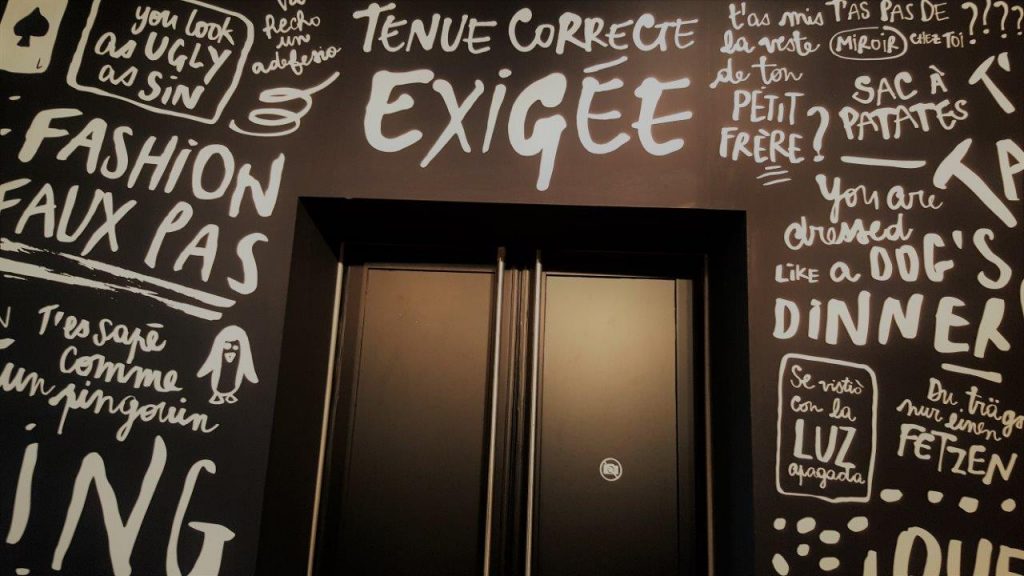 you look
as UGLY
as SiN
hecho
un
adefesio
TENUE CORRECTE
EXiGÉE
t'as mis
la veste
de ton
PETIT
FRÈRE?
T'AS PAS DE
MIROIR CHEZ TOI ????
SAC À
PATATES
T'
TA
FASHiON
FAUX PAS
you are
dressed
LIKE a DOG'S
DiNNER
T'es sapé
comme
un pingouin
Se vistió
con la
LUZ
apagada
Du träg
nur einen
FETZEN
iNG
QUE